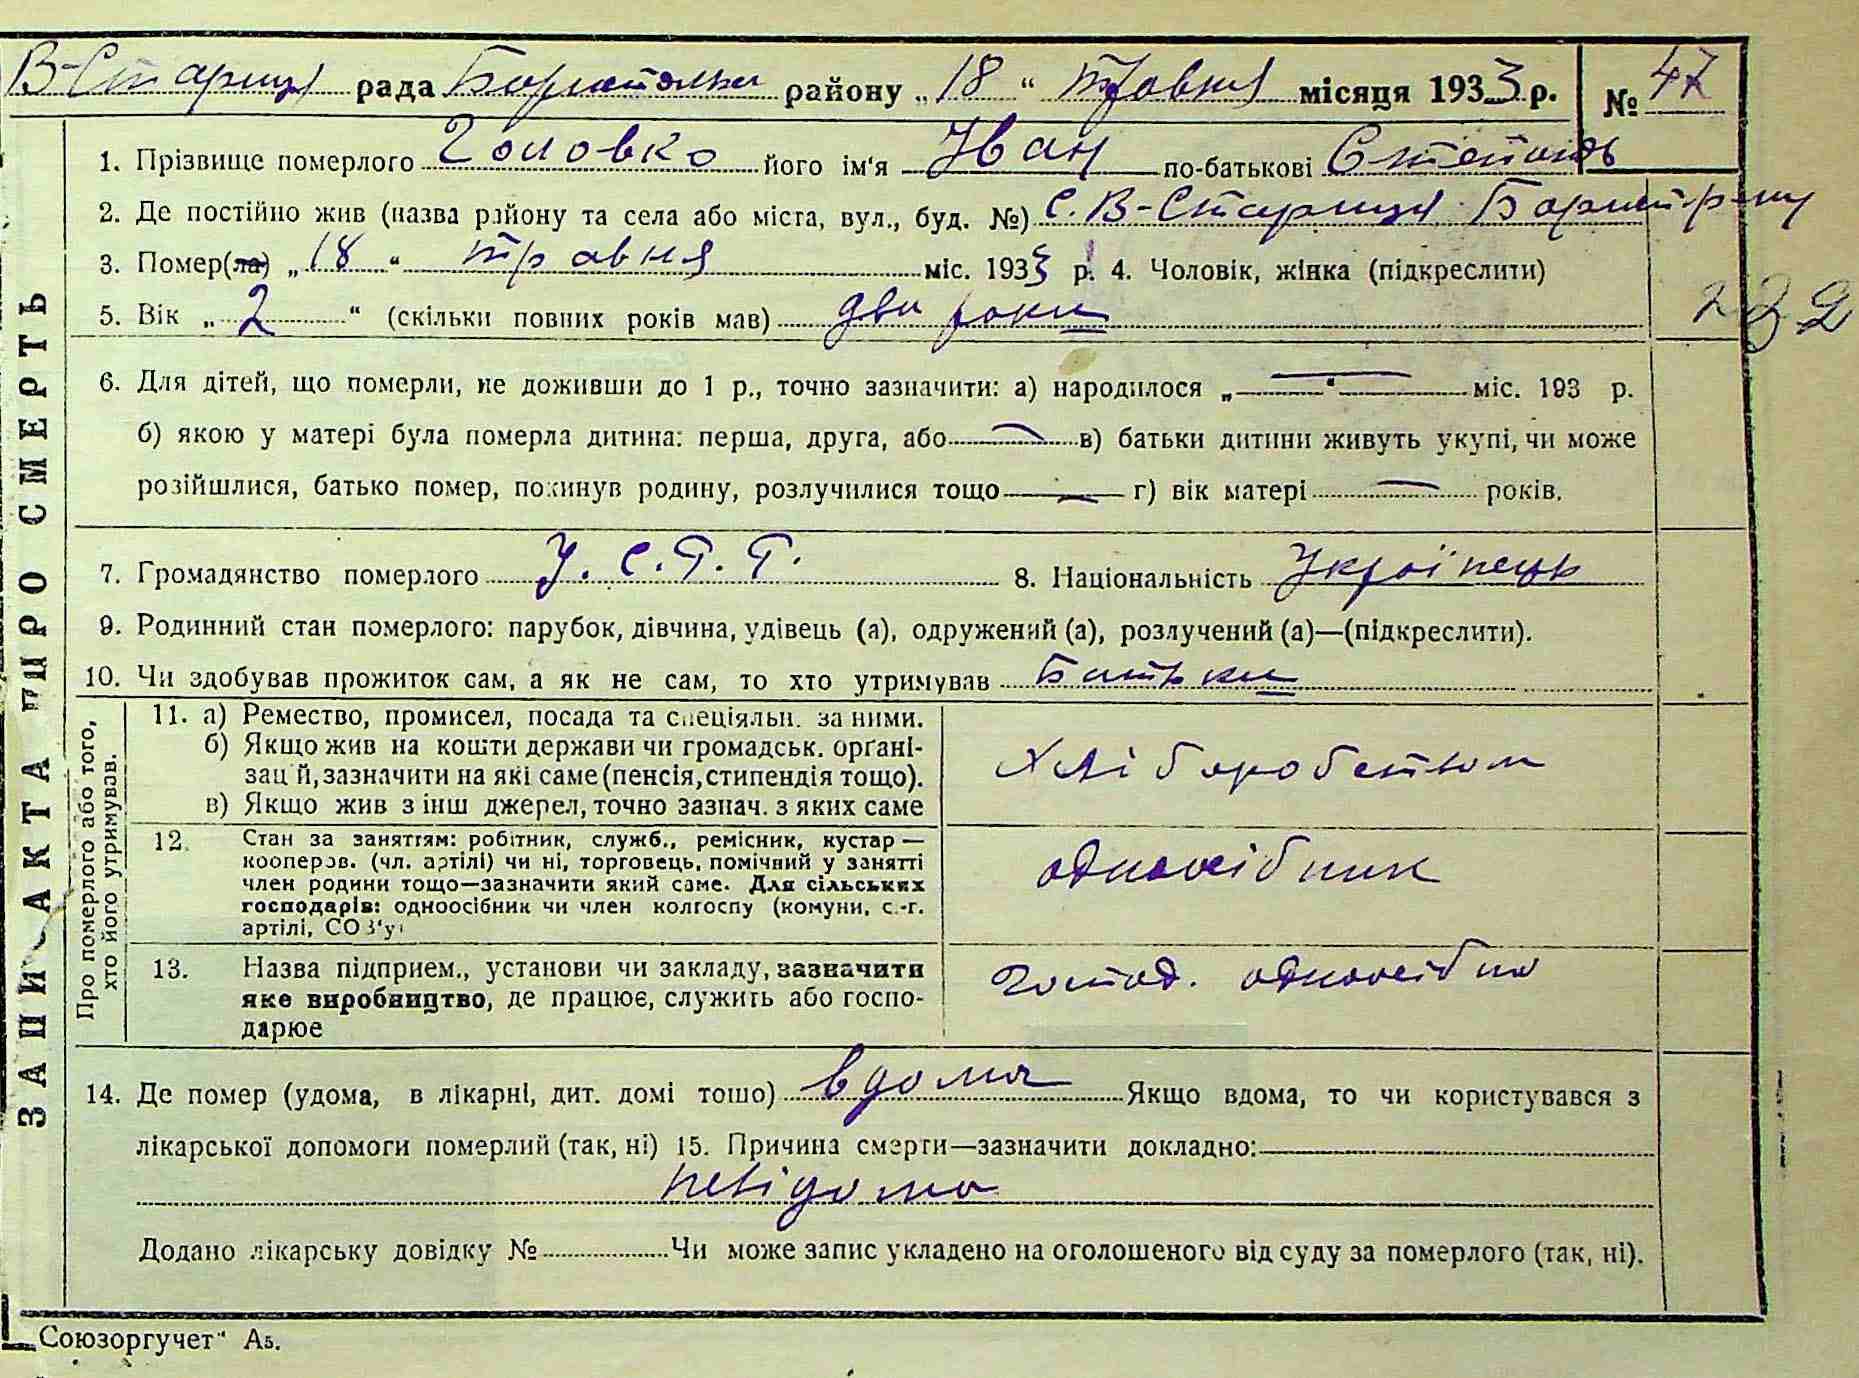 В-Стариця рада Бориспольск району „18“ травня місяця 1933 р. № 47
1. Прізвище померлого Головко його ім'я Іван по-батькові Степанов
2. Де постійно жив (назва району та села або міста, вул., буд. №) с. В-Стариця Борисп р-ну
3. Помер(ла) „18“ травня міс. 1933 р. 4. Чоловік, жінка (підкреслити)
5. Вік „2“ (скільки повних років мав) два роки
232
6. Для дітей, що померли, не доживши до 1 р., точно зазначити: а) народилося „—“ — міс. 193 р.
б) якою у матері була померла дитина: перша, друга, або — в) батьки дитини живуть укупі, чи може
розійшлися, батько помер, покинув родину, розлучилися тощо — г) вік матері — років.
7. Громадянство померлого У.С.Р.Р. 8. Національність Українець
9. Родинний стан померлого: парубок, дівчина, удівець (а), одружений (а), розлучений (а)—(підкреслити).
10. Чи здобував прожиток сам, а як не сам, то хто утримував Батьки
ЗАПИС АКТА ПРО СМЕРТЬ
Про померлого або того, хто його утримував.
11. а) Ремество, промисел, посада та спеціяльн. за ними.
б) Якщо жив на кошти держави чи громадськ. органі-
зацій, зазначити на які саме (пенсія, стипендія тощо).
в) Якщо жив з інш джерел, точно зазнач. з яких саме
Хліборобством
12. Стан за заняттям: робітник, служб., ремісник, кустар —
кооперов. (чл. артілі) чи ні, торговець, помічний у занятті
член родини тощо—зазначити який саме. Для сільських
господарів: одноосібник чи член колгоспу (комуни, с.-г.
артілі, СОЗ'у)
одноосібник
13. Назва підприєм., установи чи закладу, зазначити
яке виробництво, де працює, служить або госпо-
дарює
господ. одноосібна
14. Де помер (удома, в лікарні, дит. домі тошо) вдома Якщо вдома, то чи користувався з
лікарської допомоги померлий (так, ні) 15. Причина смерти—зазначити докладно:
невідома
Додано лікарську довідку № Чи може запис укладено на оголошеного від суду за померлого (так, ні).
„Союзоргучет“ А5.